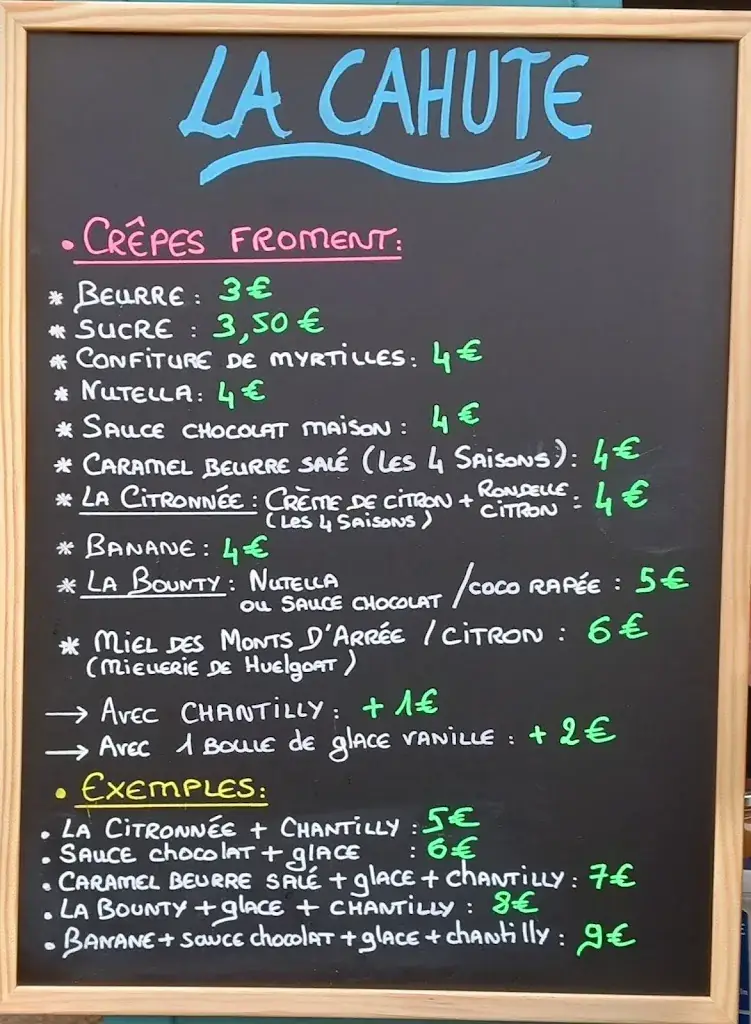 LA CAHUTE
• CRÊPES FROMENT:
* BEURRE : 3€
* SUCRE : 3,50€
* CONFITURE DE MYRTILLES: 4€
* NUTELLA: 4€
* SAUCE CHOCOLAT MAISON : 4€
* CARAMEL BEURRE SALÉ (LES 4 SAISONS): 4€
* LA CITRONNÉE : CRÈME DE CITRON + RONDELLE CITRON : 4€
(LES 4 SAISONS)
* BANANE : 4€
* LA BOUNTY : NUTELLA
OU SAUCE CHOCOLAT / COCO RAPÉE : 5€
* MIEL DES MONTS D'ARRÉE / CITRON : 6€
(MIELLERIE DE HUELGOAT)
→ AVEC CHANTILLY : + 1€
→ AVEC 1 BOULE de glACE VANILLE : + 2€
• EXEMPLES:
• LA CITRONNÉE + CHANTILLY : 5€
• SAUCE chocolAT + glACE : 6€
• CARAMEL BEURRE SALÉ + glACE + chANTILLY : 7€
• LA BOUNTY + glACE + CHANTILLY : 8€
• BANANE + SAUCE chocolAT + glACE + chantilly : 9€